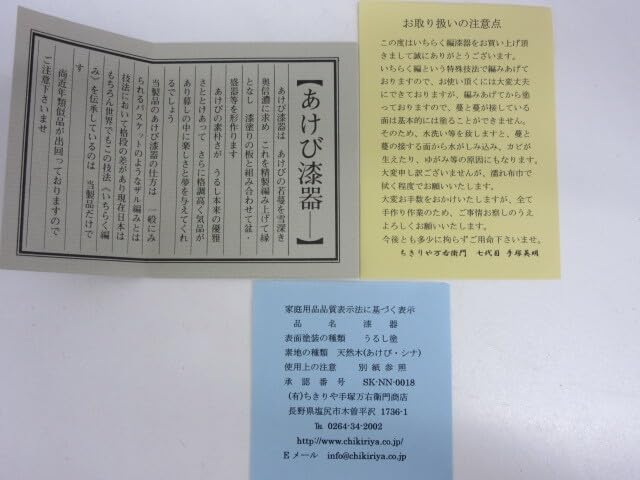 【あけび漆器】
あけび漆器は あけびの若蔓を雪深き
奥信濃に求め これを精製編み上げて縁
となし 漆塗りの板と組み合わせて盆・
盛器等を形作ります
あけびの素朴さが うるし本来の優雅
さととけあって さらに格調高く気品が
あり暮しの中に楽しさと夢を与えてくれ
るでしょう
当製品のあけび漆器の仕方は 一般にみ
られるバスケットのようなザル編みとは
技法において格段の差があり現在日本は
もちろん世界でもこの技法（いちらく編
み）を伝承しているのは 当製品だけで
す
尚近年類似品が出回っておりますので
ご注意下さいませ
お取り扱いの注意点
この度はいちらく編漆器をお買い上げ頂
きまして誠にありがとうございます。
いちらく編という特殊技法で編みあげて
おりますので、お使い頂くには大変丈夫
にできておりますが、編みあげてから塗
っておりますので、蔓と蔓が接している
面は基本的には塗ることができません。
そのため、水洗い等を致しますと、蔓と
蔓の接する面から水がしみ込み、カビが
生えたり、ゆがみ等の原因にもなります。
大変申し訳ございませんが、濡れ布巾で
拭く程度でお願いいたします。
大変お手数をおかけいたしますが、全て
手作り作業のため、ご事情お察しのうえ
よろしくお願いいたします。
今後とも多少に拘らずご用命下さいませ。
ちきりや万右衛門 七代目 手塚英明
家庭用品品質表示法に基づく表示
品名 漆器
表面塗装の種類 うるし塗
素地の種類 天然木(あけび・シナ)
使用上の注意 別紙参照
承認番号 SK-NN-0018
(有)ちきりや手塚万右衛門商店
長野県塩尻市木曽平沢 1736-1
℡ 0264-34-2002
http://www.chikiriya.co.jp/
Eメール info@chikiriya.co.jp